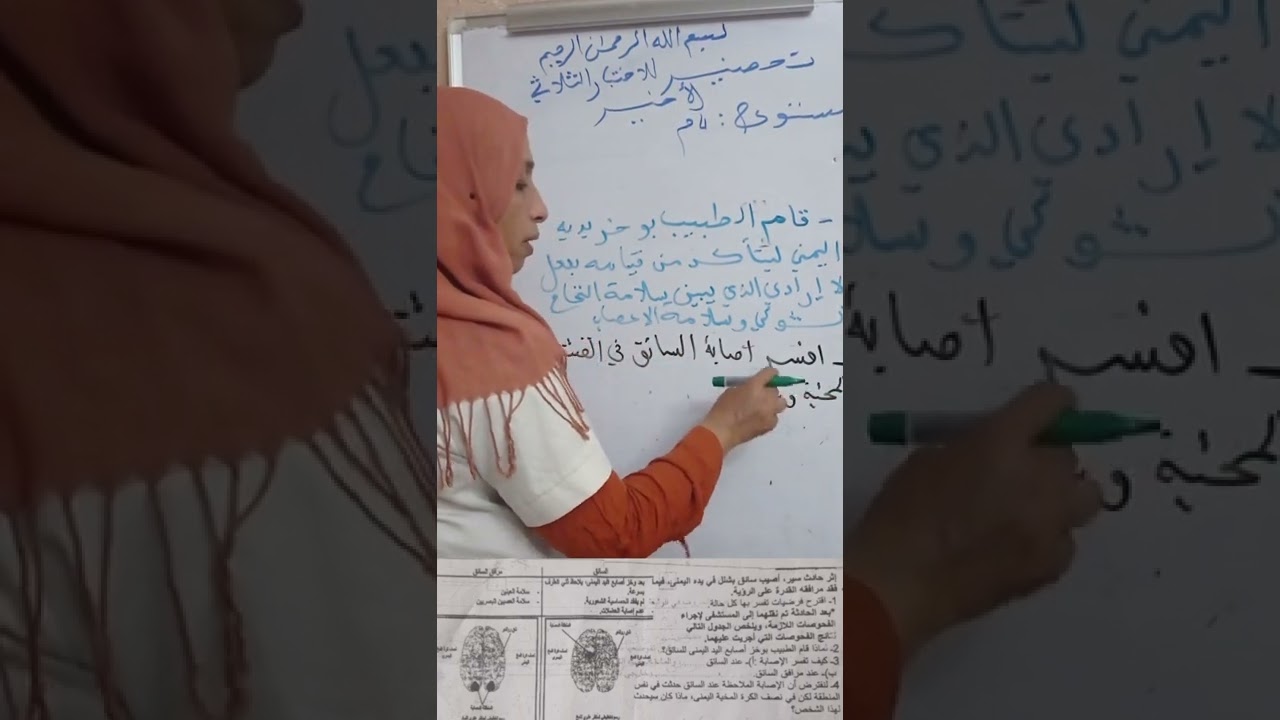 بسم الله الرحمان الرحيم
تحضير للاختبار الثلاثي
الأخير
مستوى: 4م
- قام الطبيب بوخز يديه
اليمنى ليتأكد من قيامه بفعل
لا إرادي الذي يبين سلامة النخاع
الشوكي وسلامة الاعصاب
- افسر اصابة السائق في القشرة
المخية
إثر حادث سير، أصيب سائق بشلل في يده اليمنى، فيما
فقد مرافقه القدرة على الرؤية.
1- اقترح فرضيات تفسر بها كل حالة.
"بعد الحادثة تم نقلهما إلى المستشفى لإجراء
الفحوصات اللازمة، ويلخص الجدول التالي
نتائج الفحوصات التي أجريت عليهما.
2- لماذا قام الطبيب بوخز أصابع اليد اليمنى للسائق؟
3- كيف تفسر الإصابة : أ)ـ عند السائق
ب)ـ عند مرافق السائق
4- لنفترض أن الإصابة الملاحظة عند السائق حدثت في نفس
المنطقة لكن في نصف الكرة المخية اليمنى، ماذا كان سيحدث
لهذا الشخص؟
السائق
مرافق السائق
بعد وخز أصابع اليد اليمنى، يلاحظ ثني الطرف
بسرعة.
لم يفقد الحساسية الشعورية.
عدم إصابة العضلات.
سلامة العينين
سلامة العصبين البصريين